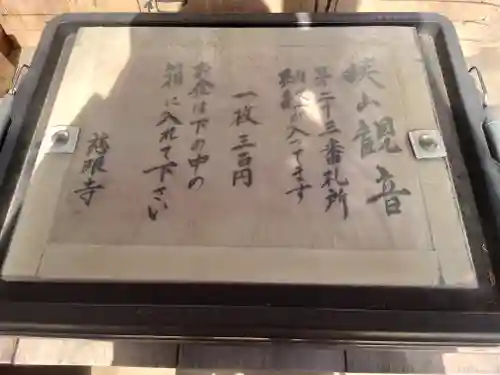 狭山観音
第二十三番札所
朱印が入ってます
一枚三百円
お金は下の中の
箱に入れて下さい
慈眼寺